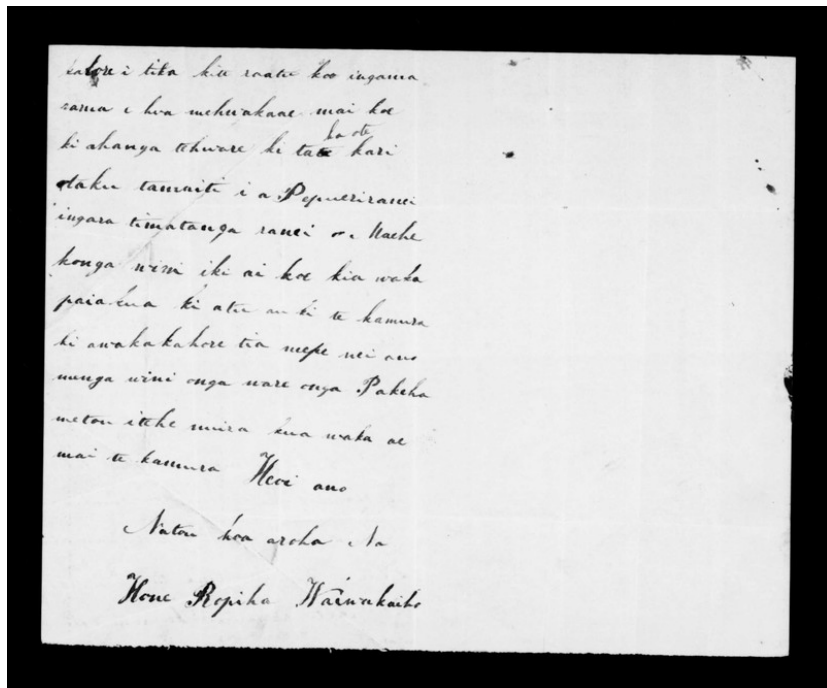 kahore i tika kia raatu koo ingama
rama i hua mehwakaae mai koe
ki ahanga tehware ki tata kari
ka ote
otaku tamaiti i a Pepueriranei
ingara timatanga ranei o Maehe
konga wini iki ai koe kia waka
paiakua ki atu au ki te kamura
ki awakakahore tia mepe nei ano
nunga wini onga ware onga Pakeha
metou itehe muira kua waka ae
mai te kamura Heoi ano
Natou hoa aroha Na
Hone Ropiha